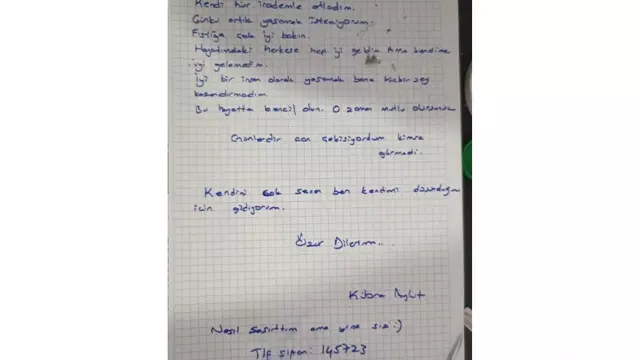 Kendi hür irademle atladım.
Çünkü artık yaşamak istemiyorum.
Fıstığa çok iyi bakın.
Hayatımdaki herkese hep iyi geldim ama kendime
iyi gelemedim.
İyi bir insan olarak yaşamak bana hiçbir şey
kazandırmadım.
Bu hayatta bencil olun. O zaman mutlu olursunuz
Günlerdir can çekişiyordum kimse
görmedi.
Kendini çok seven ben kendimi düşündüğüm
için gidiyorum.
Özür Dilerim...
Kübra Aykut
Nasıl şaşırttım ama yine sizi :)
Tlf şifrem: 145723